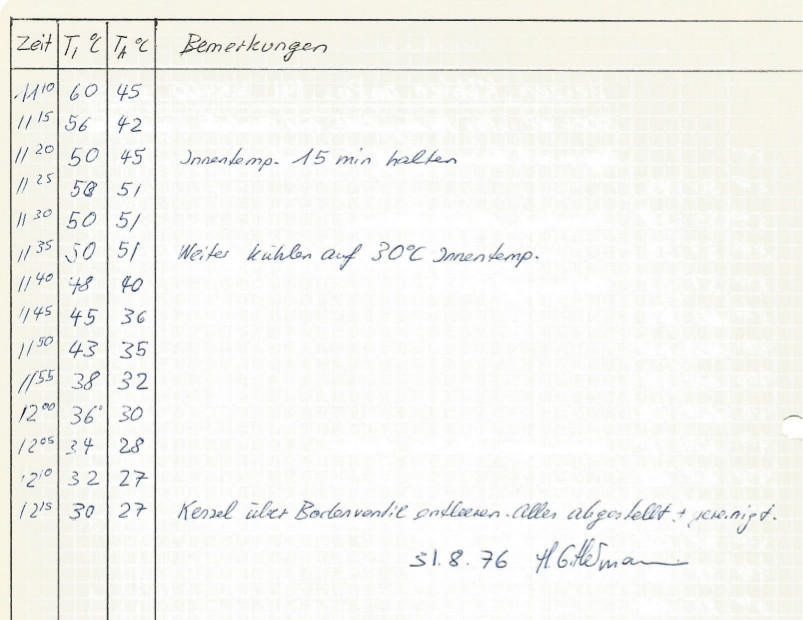 Zeit T_I °C T_A °C Bemerkungen
11 10 60 45
11 15 56 42
11 20 50 45 Innentemp. 15 min halten
11 25 50 51
11 30 50 51
11 35 50 51 Weiter kühlen auf 30°C Innentemp.
11 40 48 40
11 45 45 36
11 50 43 35
11 55 38 32
12 00 36 30
12 05 34 28
12 10 32 27
12 15 30 27 Kessel über Bodenventil entleeren. Alles abgestellt + gereinigt.
31.8.76